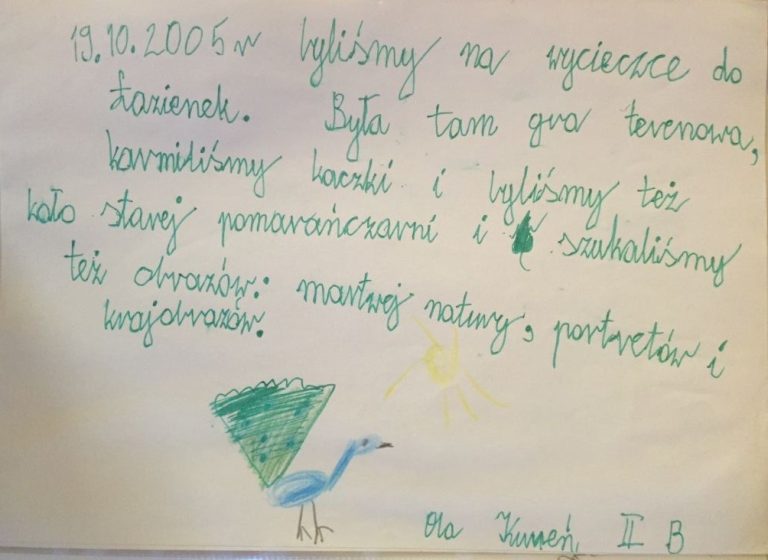 19.10.2005r byliśmy na wycieczce do
Łazienek. Była tam gra terenowa,
karmiliśmy kaczki i byliśmy też
koło starej pomarańczarni i szukaliśmy
też obrazów: martwej natury, portretów i
krajobrazów.
Ola II B